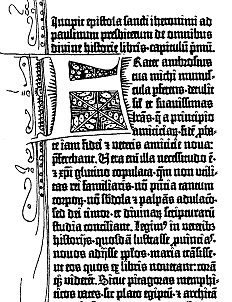 Incipit epistola sancti iheronimi ad
paulinum presbiterum de omnibus
divine historie libris· capitulū pᵐū.
Frater ambrosius
tua michi munus-
cula pferens· detulit
sił et suavissimas
lr̄as· q̄ a principio
amiciciaꝝ· fidē ꝓba-
te iam fidei ⁊ veteris amicicie nova:
pferebant. Vera em̄ illa necessitudo ē·
⁊ xpi glutino copulata· qm̄ non utili-
tas rei familiaris· nō pn̄tia tantum
corpoꝝ· nō sb̄dola ⁊ palpās adulacō·
sed dei timor· et divinaꝝ scripturarū
studia conciliant. Legimꝰ in veteribꝫ
historijs· quosdā lustrasse ꝓvīcias·
novos adijsse ꝓplos· maria trāsisse·
ut eos quos ex libris noverant: corā
qꝫ viderēt. Sicut pitagoras memphi-
ticos vates· sic plato egiptū· ⁊ architā